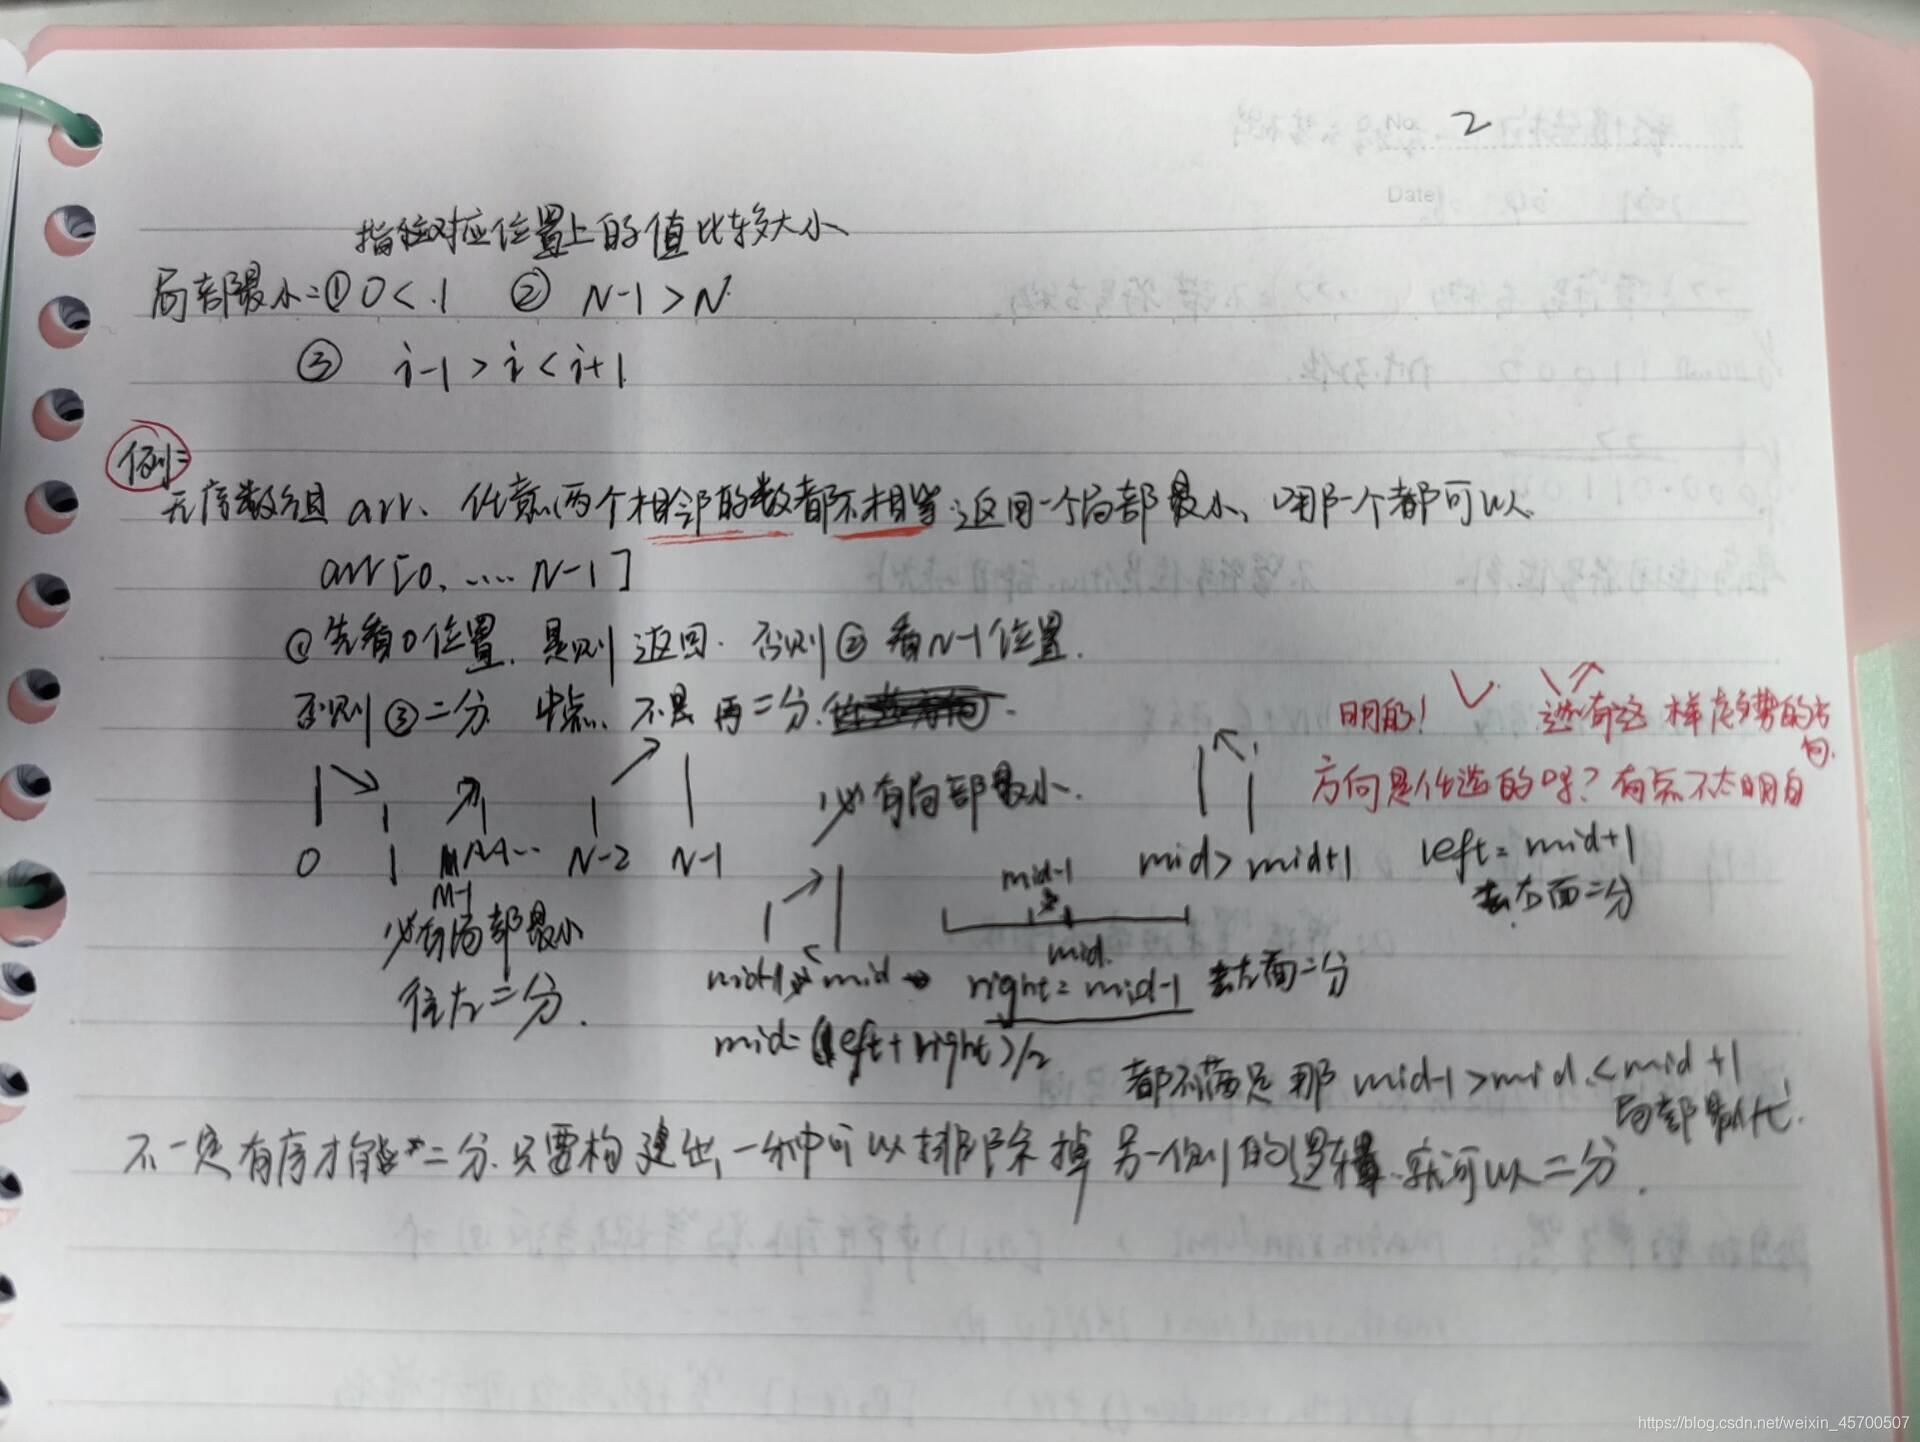 No. 2
Date
指的对应位置上的值比较大小
局部最小=① 0<1 ② N-1>N
③ i-1>i<i+1
例=
无序数组 arr、任意两个相邻的数都不相等、返回一个局部最小、哪一个都可以
arr[0, .... N-1]
①先看0位置. 是则返回. 否则② 看N-1位置.
否则③二分 中点、不是再二分.
明白! 选有这样走势的方向.
方向是任选的吗? 有点不太明白
必有局部最小.
0 1 M-1 M... N-2 N-1
mid > mid+1 left = mid+1
去右面二分
必有局部最小
往左二分.
mid-1
mid
mid-1 < mid → right = mid-1 去左面二分
mid=(left+right)/2
都不满足 那 mid-1>mid<mid+1
局部最小
不一定有序才能二分.只要构建出一种可以排除掉另一侧的逻辑.就可以二分.
https://blog.csdn.net/weixin_45700507